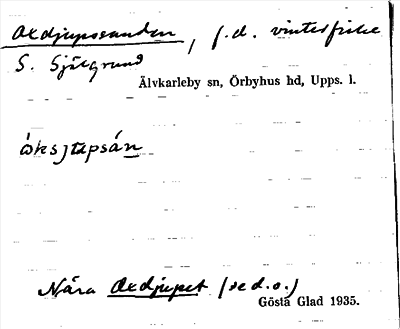 Oxdjupssanden, f.d. vinterfiske
S. Själgrund
Älvkarleby sn, Örbyhus hd, Upps. l.
òksjupsán
Nära Oxdjupet (se d.o.)
Gösta Glad 1935.